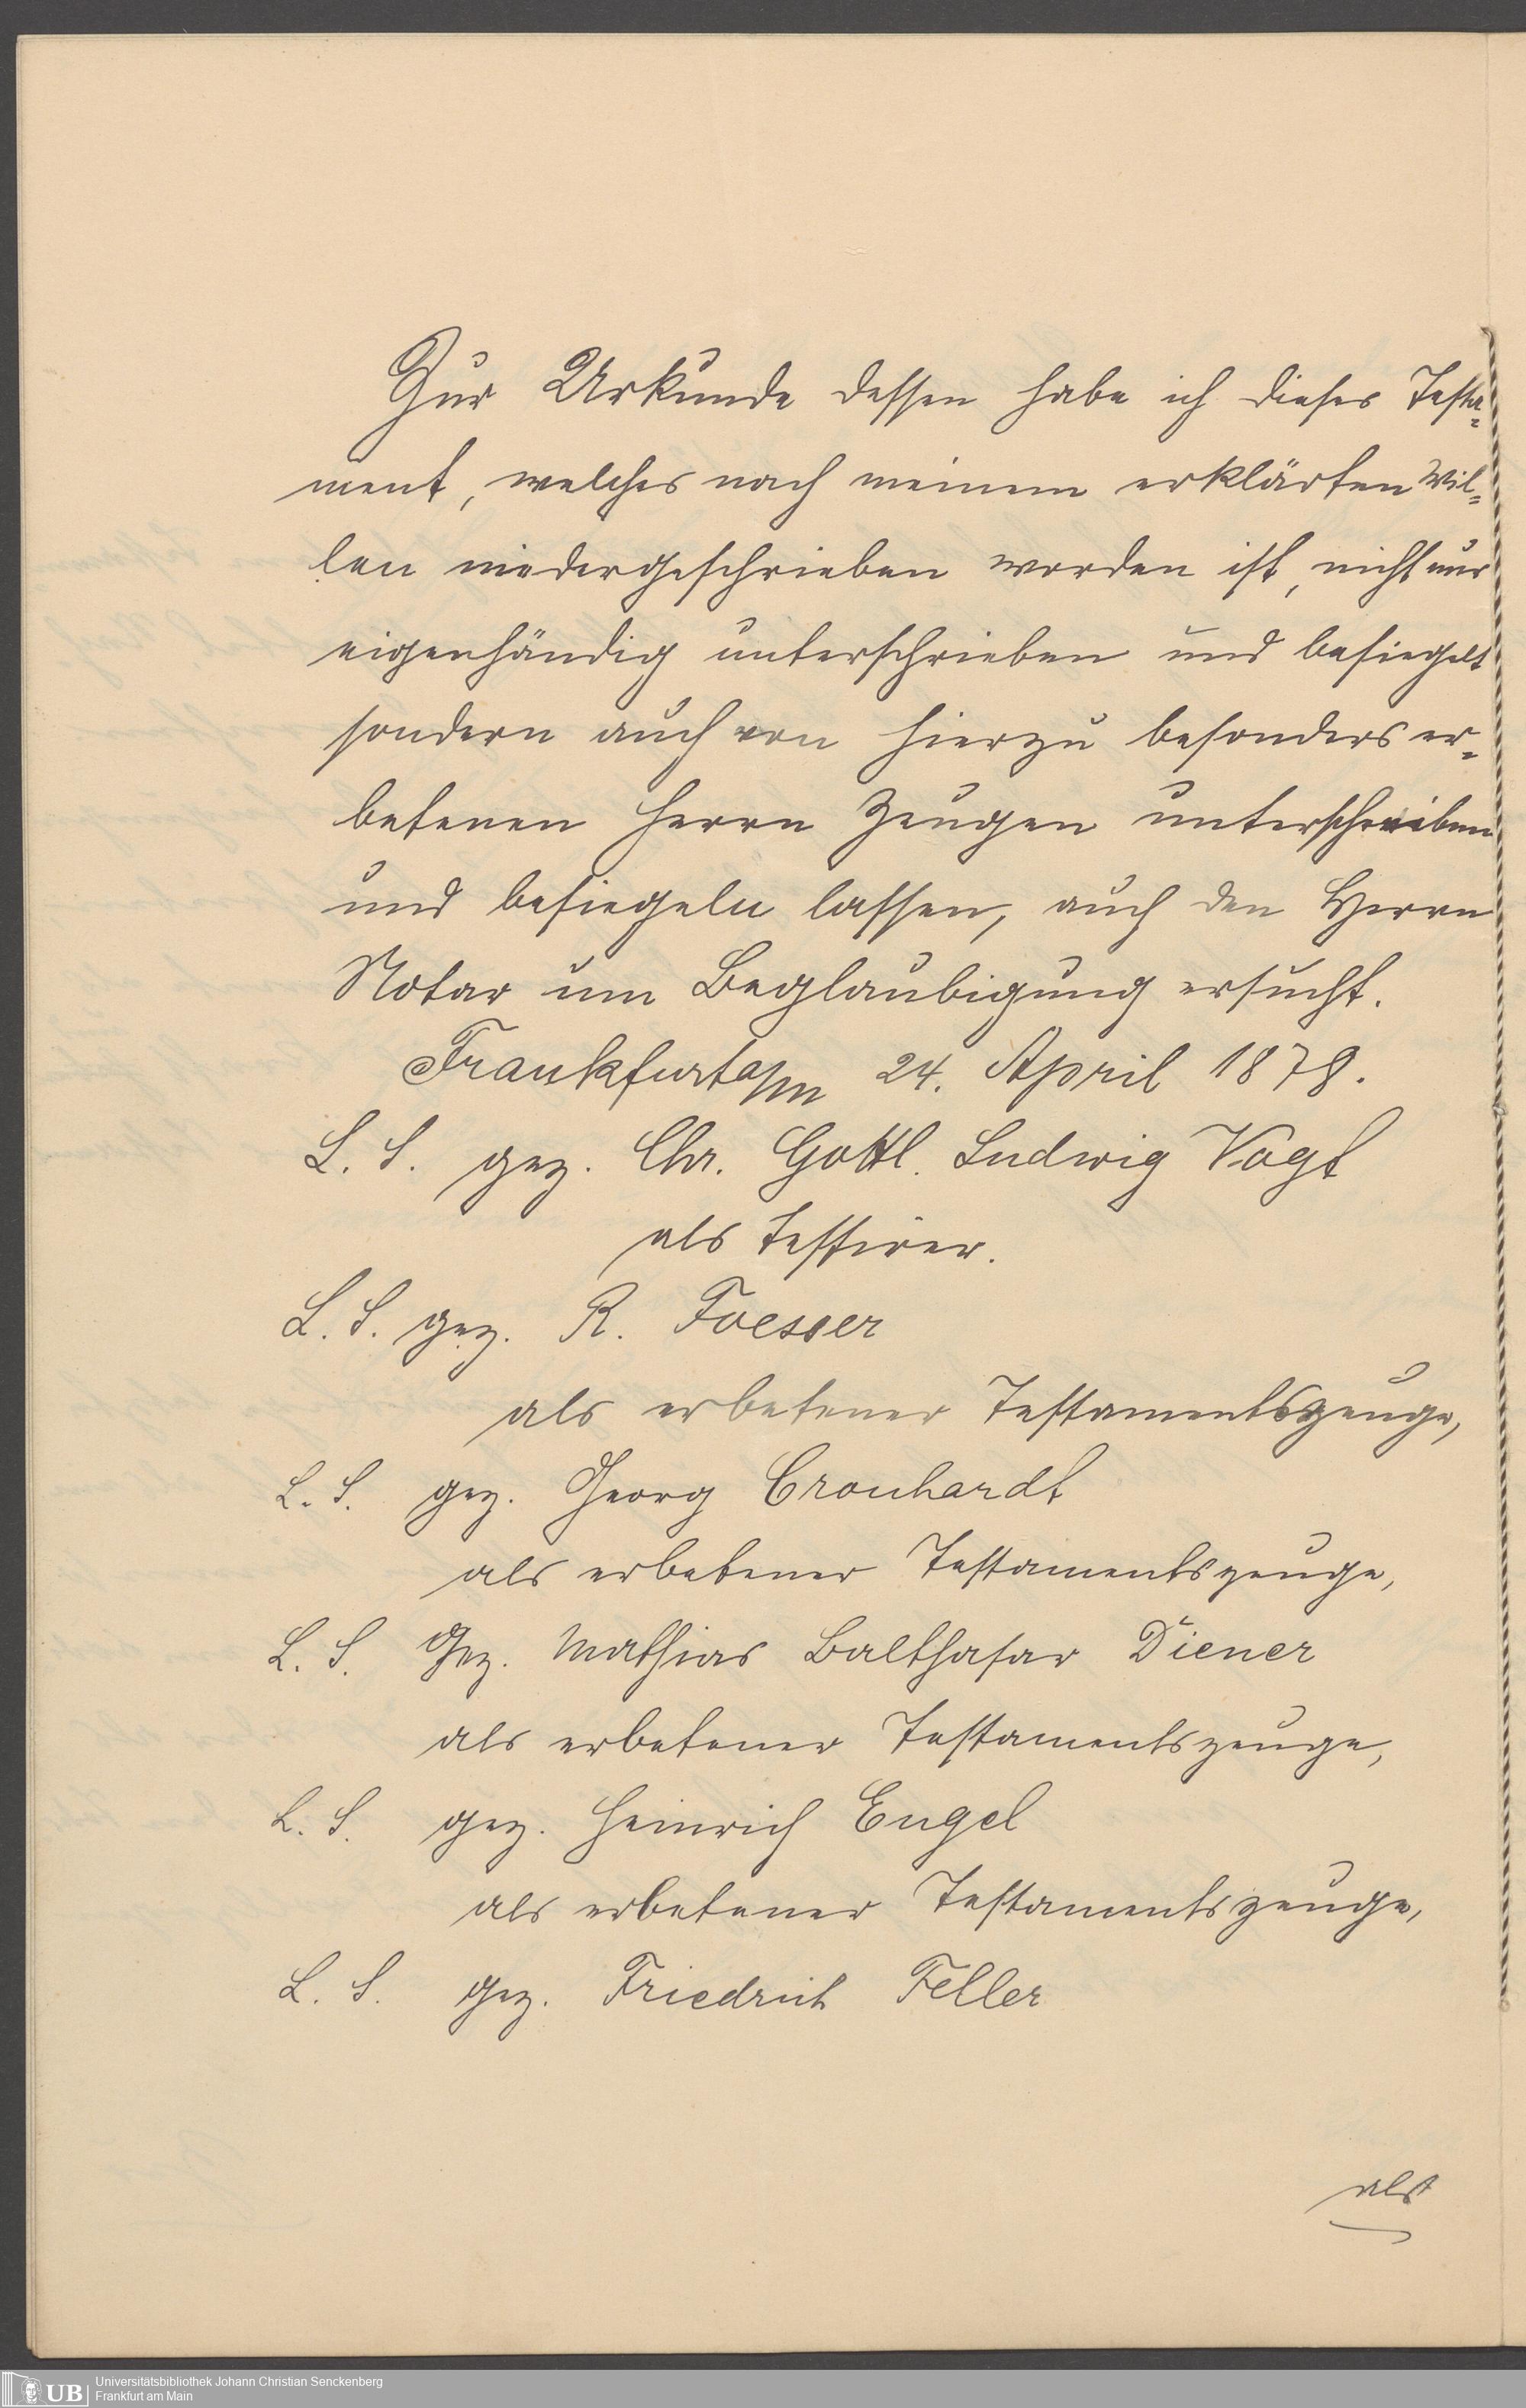 Zur Urkunde dessen habe ich dieses Testa-
ment, welches nach meinem erklärten Wil-
len niedergeschrieben worden ist, nicht nur
eigenhändig unterschrieben und besiegelt
sondern auch von hierzu besonders er-
betenen Herrn Zeugen unterschreiben
und besiegeln lassen, auch den Herrn
Notar um Beglaubigung ersucht.
Frankfurt a/m 24. April 1878.
L. S. gez. Chr. Gottl. Ludwig Vogt
als Testirer.
L. S. gez. R. Foesser
als erbetener Testamentszeuge,
L. S. gez. Georg Cronhardt
als erbetener Testamentszeuge,
L. S. Gez. Mathias Balthasar Diener
als erbetener Testamentszeuge,
L. S. gez. Heinrich Engel
als erbetener Testamentszeuge,
L. S. gez. Friedrich Feller
als
UB
Universitätsbibliothek Johann Christian Senckenberg
Frankfurt am Main